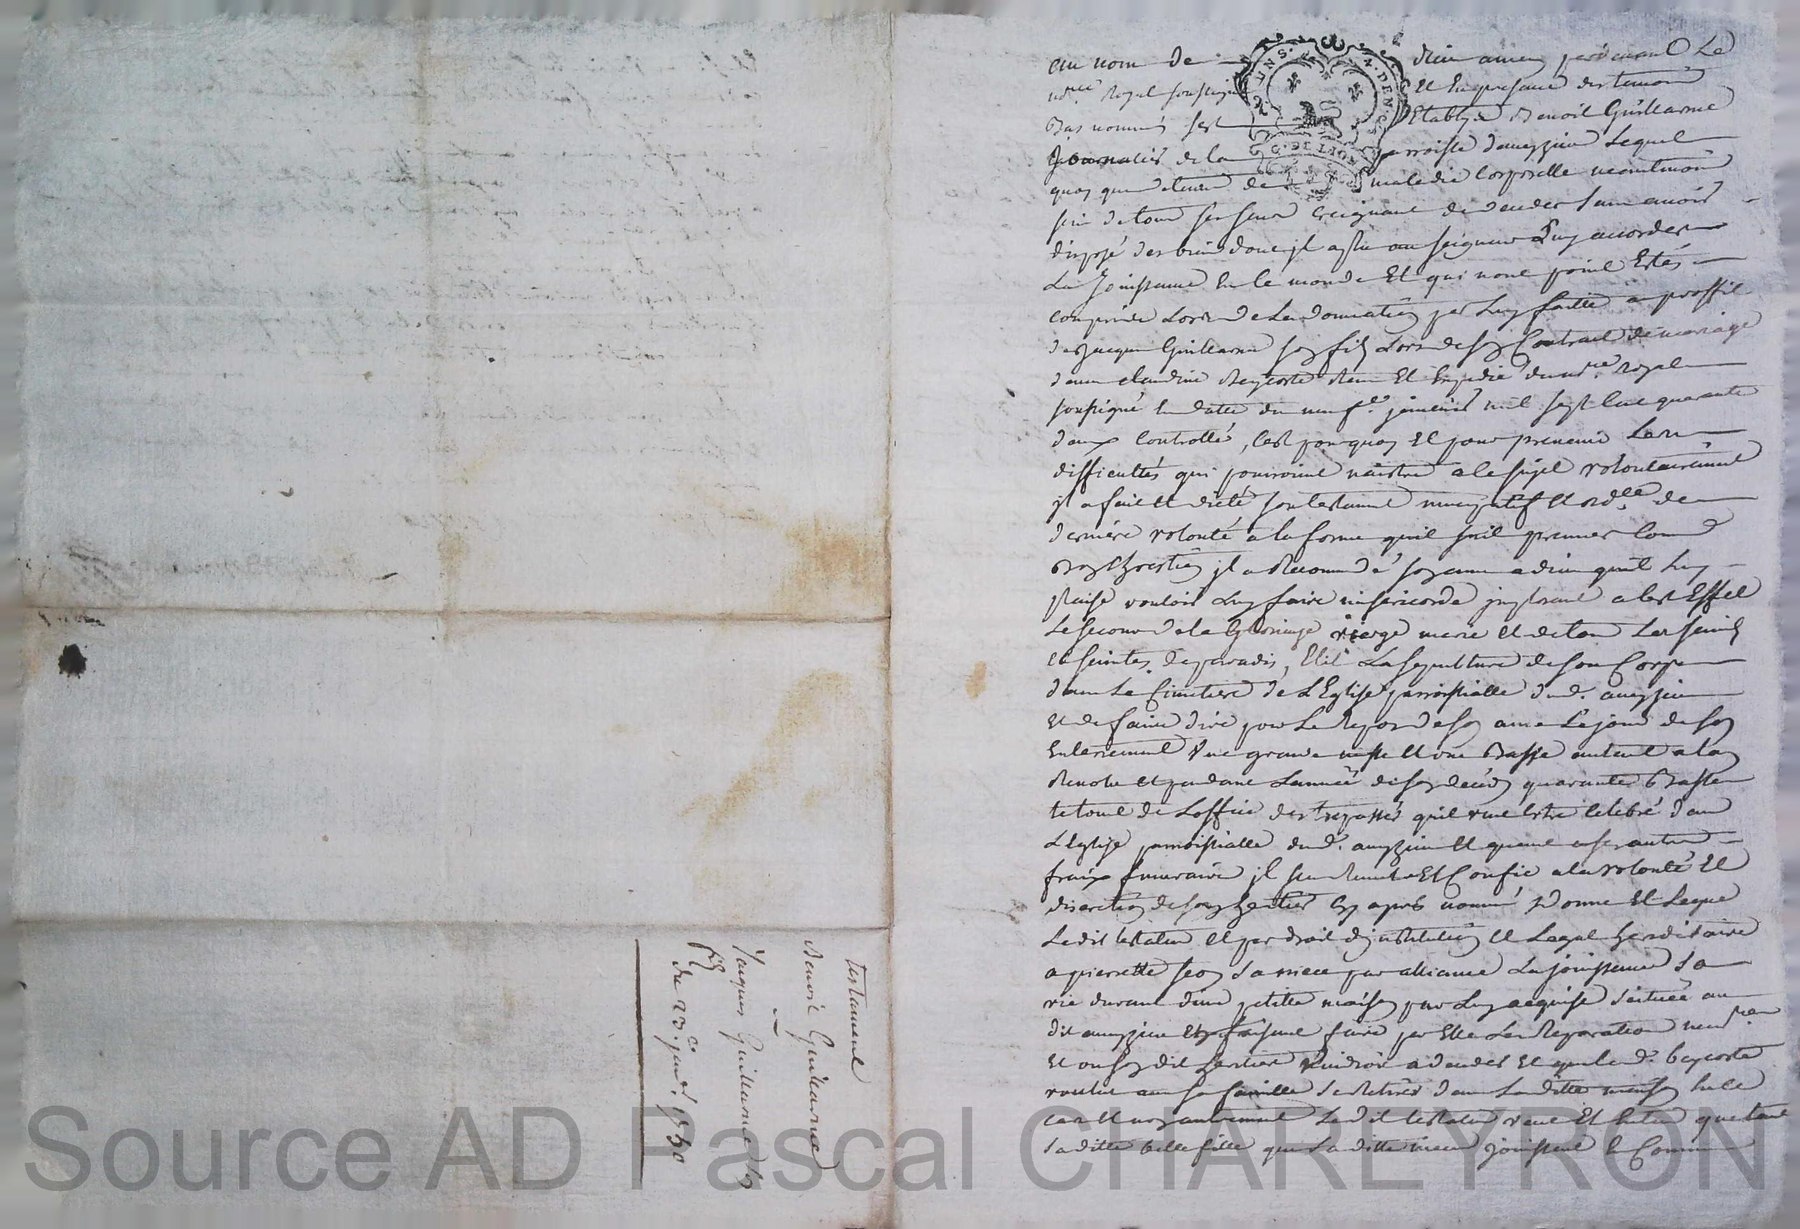 au nom de dieu amen pardevant Le
no.re Royal soussigné Et En presence des temoins
Bas nommés fut Etably Benoit Guillarme
Journalier de la parroisse d'aveyzieu Lequel
quoy que detenu de maladie Corporelle neantmoins
sain de tous ses sens creignant de deceder sans avoir
disposé des biens dont jl a plu au seigneur Luy accorder
La Jouissance En Ce monde Et qui n'ont point Estés
compris Lors de La donnation par Luy faitte a proffit
de Jacques Guillarme son fils Lors de son Contrat de mariage
avec claudine Beycoste Receu Et Expedié du no.re Royal
soussigné En datte du neuf.e janvier mil sept Cent quarante
deux Controllé, Cest pourquoy Et pour prevenir Les
difficultés qui pourroient naistre a Ce sujet volontairement
jl a fait Et dicté son testament nuncupatif Et ord.ce de
derniere volonté a la forme quil suit premier Comme
Bon Chrestien jl a Recommandé son ame a dieu quil Luy
plaise vouloir Luy faire misericorde jmplorant a Cest Effet
Le secour de la Glorieuse vierge marie Et de tous Les saints
et saintes de paradis, Elit La sepulture de son Corps
dans Le Cimetiere de L'Eglise parroissialle dud. aveyzieu
Et de faire dire pour Le Repos de son ame Le jour de son
Enterrement Une grande messe Et une Basse autant a la
Revolue et pendant L'année de son decés quarante Basses
le tout de L'office des trepassés quil veut Estre Celebré dans
L'Eglise parroissialle dud. aveyzieu Et quant a ses autres
fraix funeraires jl s'en Remet Et Confie a la volonté Et
discretion de son heritier Cy apres nommé Donne Et Legue
Ledit testateur Et par droit d'jnstitution Et Legat hereditaire
a pierrette sa niece par alliance La jouissance sa
vie durant d'une petitte maison par Luy acquise scituée au
dit aveyzieu En faisant faire par Elle Les Reparations
Et ou son dit heritier viendroit a deceder Et que lad. beycoste
voulut avec sa famille se Retirer dans La ditte maison En Ce
cas Et non autrement Ledit testateur veut Et Entend que tant
sa ditte belle fille que La ditte niece jouissent En Commun
testament
Benoit Guillarme
a
Jacques Guillarme
fils
du 23.e 1750
G. DE LION
Source AD Pascal CHAREYRON